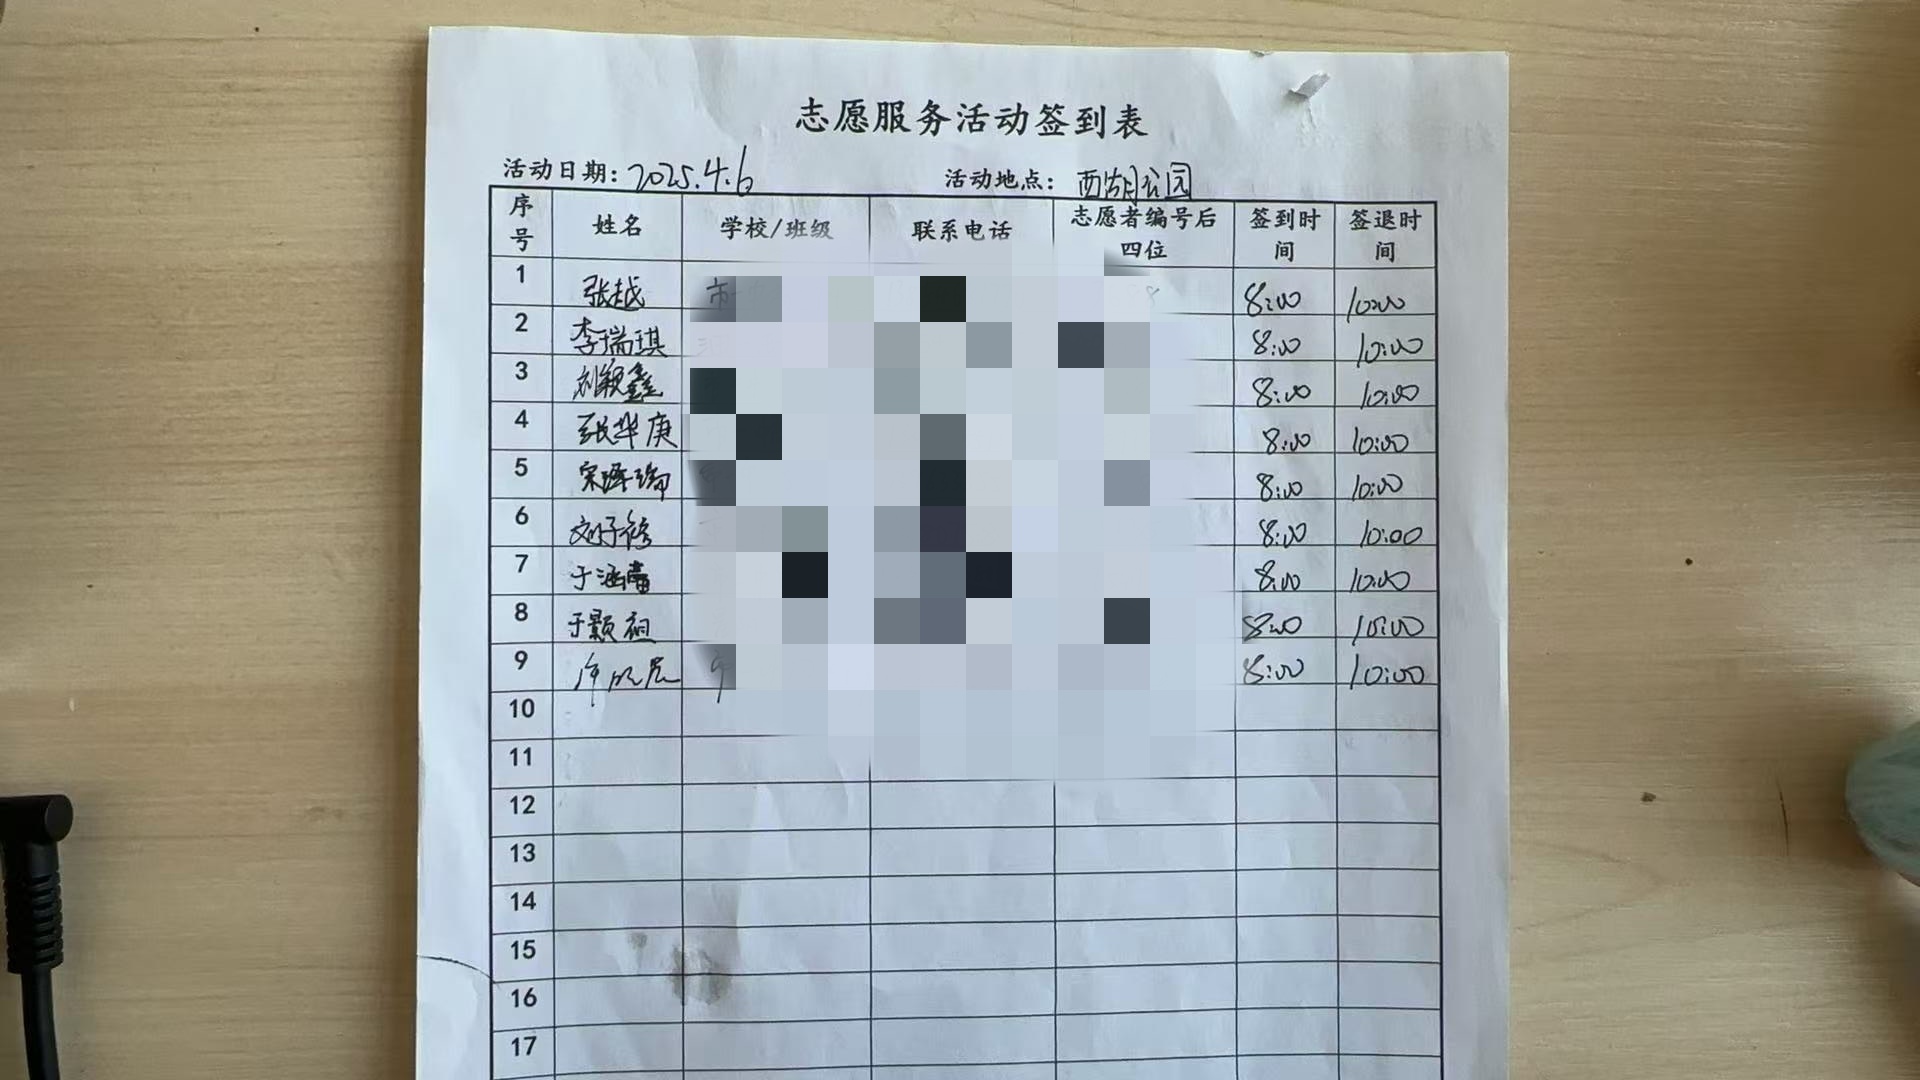 志愿服务活动签到表
活动日期：2025.4.6 活动地点：西湖公园
序号 姓名 学校/班级 联系电话 志愿者编号后四位 签到时间 签退时间
1 张越 市 8:00 10:00
2 李瑞琪 8:00 10:00
3 刘颖鑫 8:00 10:00
4 张华庚 8:00 10:00
5 宋 8:00 10:00
6 刘子修 8:00 10:00
7 于涵蕾 8:00 10:00
8 于颢祖 8:00 10:00
9 8:00 10:00
10
11
12
13
14
15
16
17